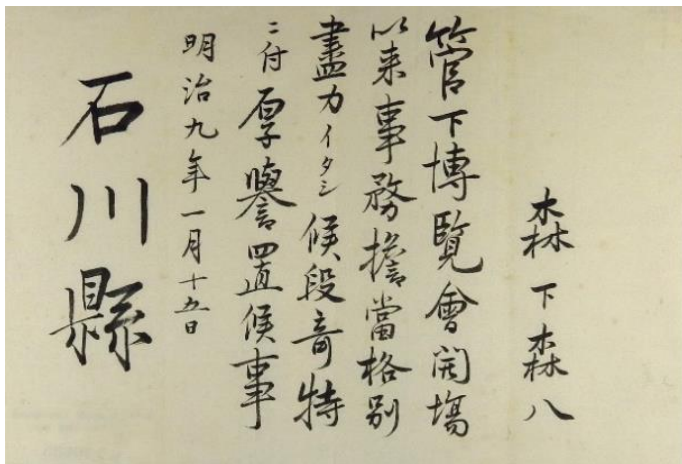 森下森八
管下博覧會開塲
以来事務擔當格別
盡力イタシ候段竒特
ニ付厚譽置候事
明治九年一月十五日
石川縣